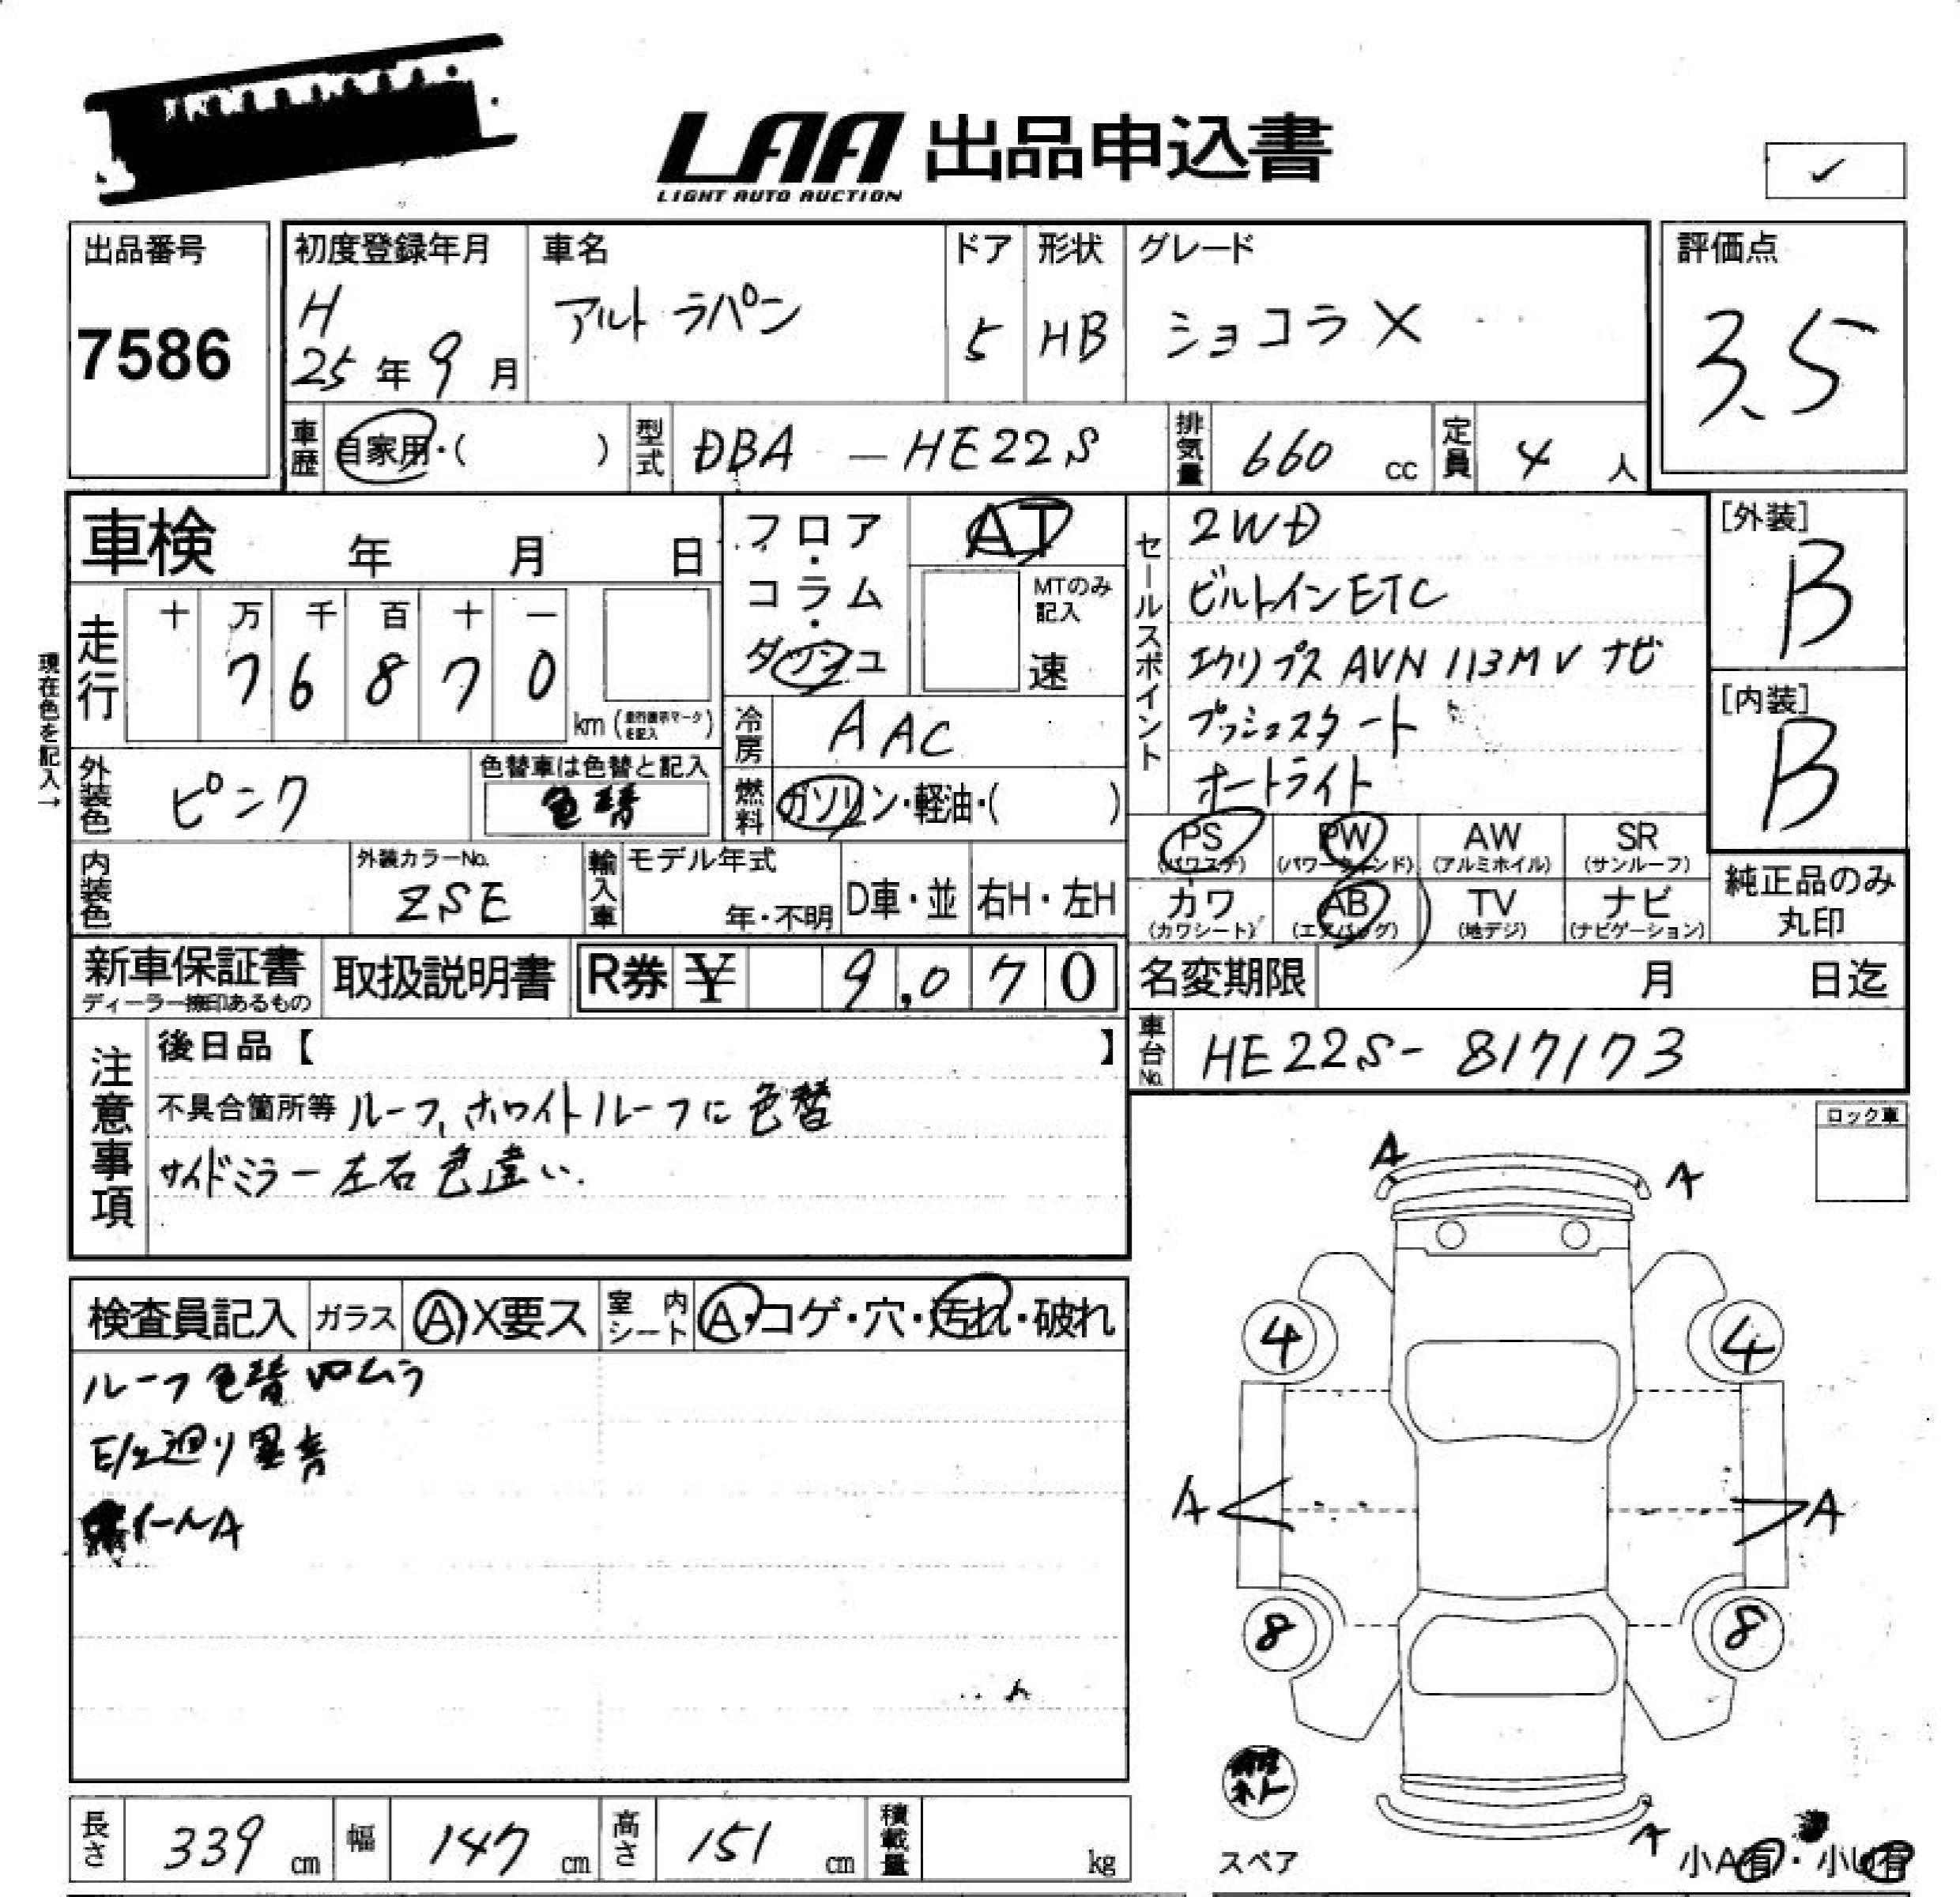 LAA 出品申込書
LIGHT AUTO AUCTION
✓
出品番号
7586
初度登録年月
H
25 年 9 月
車名
アルト ラパン
ドア
5
形状
HB
グレード
ショコラX
評価点
3.5
車歴 自家用・( )
型式 DBA - HE22S
排気量 660 cc
定員 4 人
車検 年 月 日
現在色を記入→
走行
十 万 千 百 十 一
7 6 8 7 0
km (走行表示マークを記入)
フロア・コラム・ダッシュ
AT
MTのみ記入
速
冷房 AAC
燃料 ガソリン・軽油・( )
外装色 ピンク
色替車は色替と記入
色替
内装色
外装カラーNo.
ZSE
輸入車
モデル年式
年・不明
D車・並
右H・左H
セールスポイント
2WD
ビルトインETC
エクリプス AVN 113MV ナビ
プッシュスタート
オートライト
[外装]
B
[内装]
B
PS (パワステ)
PW (パワーウィンド)
AW (アルミホイル)
SR (サンルーフ)
カワ (カワシート)
AB (エアバッグ)
TV (地デジ)
ナビ (ナビゲーション)
純正品のみ
丸印
新車保証書
ディーラー捺印あるもの
取扱説明書
R券 ¥ 9,070
名変期限 月 日迄
車台No. HE22S- 817173
注意事項
後日品【 】
不具合箇所等 ルーフ、ホワイトルーフに色替
サイドミラー左右色違い.
ロック車
検査員記入
ガラス Ⓐ X要ス
室内シート Ⓐ・コゲ・穴・汚れ・破れ
ルーフ色替 ムラ
E/g廻り異音
イールA
A
A
4
4
A
A
8
8
A
スペア
小A有・小U有
長さ 339 cm
幅 147 cm
高さ 151 cm
積載量 kg